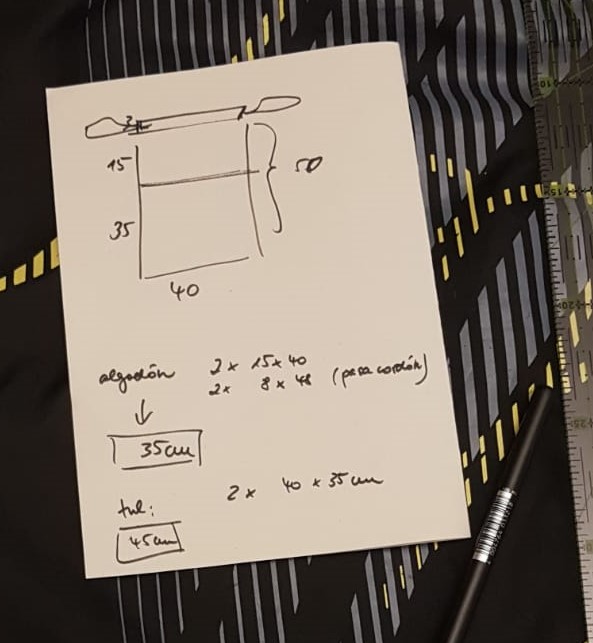 15
50
35
40
algodón 2 x 15 x 40
2x 8 x 48 (para cordón)
35cm
tul: 2 x 40 x 35 cm
45cm